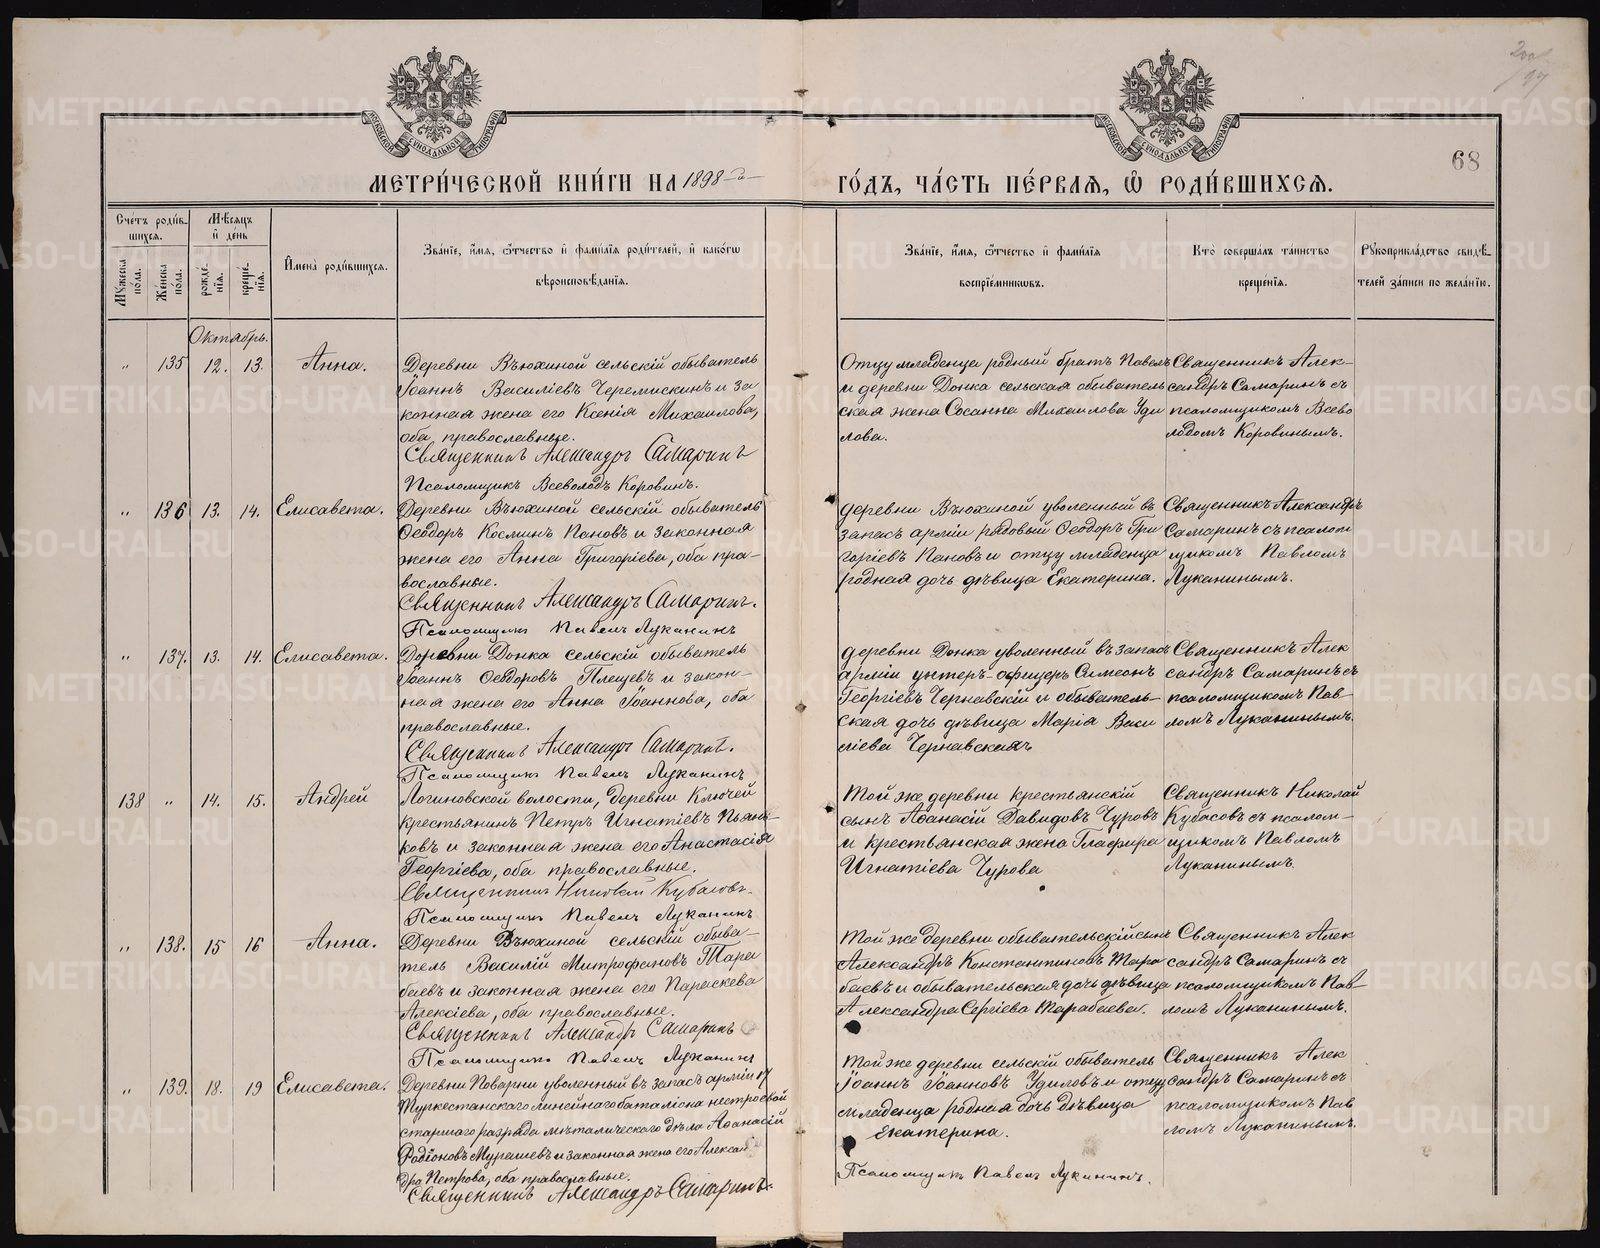 200/97
68
МЕТРИЧЕСКОЙ КНИГИ НА 1898-й
ГОДЪ, ЧАСТЬ ПЕРВАЯ, Ѡ РОДИВШИХСЯ.
Счетъ родив-
шихся.
Мѣсяцъ
и день
Мужеска
пола.
Женска
пола.
рожде-
нія.
креще-
нія.
Имена родившихся.
Званіе, имя, ѿчество и фамилія родителей, и какогѡ
вѣроисповѣданія.
Званіе, имя, ѿчество и фамилія
воспріемникѡвъ.
Кто совершалъ таинство
крещенія.
Рукоприкладство свидѣ-
телей записи по желанію.
Октябрь.
" 135 12. 13. Анна.
Деревни Вьюхиной сельскій обыватель
Іоаннъ Василіевъ Черемискинъ и за
конная жена его Ксенія Михаилова,
оба православные.
Священникъ Александръ Самаринъ
Псаломщикъ Всеволодъ Коровинъ.
Отцу младенца родный братъ Павелъ
и деревни Донка сельская обыватель
ская жена Сосанна Михаилова Уди
лова.
Священникъ Алек-
сандръ Самаринъ съ
псаломщикомъ Всево
лодомъ Коровинымъ.
" 136 13. 14. Елисавета.
Деревни Вьюхиной сельскій обыватель
Ѳеодоръ Косминъ Пановъ и законная
жена его Анна Григоріева, оба пра-
вославные.
Священникъ Александръ Самаринъ.
Псаломщикъ Павелъ Луканинъ
деревни Вьюхиной уволенный въ
запасъ арміи рядовый Ѳеодоръ Гри
горіевъ Пановъ и отцу младенца
родная дочь дѣвица Екатерина.
Священникъ Александръ
Самаринъ съ псалом
щикомъ Павломъ
Луканинымъ.
" 137. 13. 14. Елисавета.
Деревни Донка сельскій обыватель
Іоаннъ Ѳеодоровъ Плещевъ и закон-
ная жена его Анна Іоаннова, оба
православные.
Священникъ Александръ Самаринъ.
Псаломщикъ Павелъ Луканинъ
деревни Донка уволенный въ запасъ
арміи унтеръ-офицеръ Симеонъ
Георгіевъ Чернавскій и обыватель-
ская дочь дѣвица Марія Васи
ліева Чернавская
Священникъ Алек
сандръ Самаринъ съ
псаломщикомъ Пав-
ломъ Луканинымъ.
138 " 14. 15. Андрей
Логиновской волости, деревни Ключей
крестьянинъ Петръ Игнатіевъ Пьян-
ковъ и законная жена его Анастасія
Георгіева, оба православные.
Священникъ Николай Кубасовъ.
Псаломщикъ Павелъ Луканинъ
Той же деревни крестьянскій
сынъ Аѳанасій Давидовъ Чуровъ
и крестьянская жена Глафира
Игнатіева Чурова
Священникъ Николай
Кубасовъ съ псалом-
щикомъ Павломъ
Луканинымъ
" 138. 15 16 Анна.
Деревни Вьюхиной сельскій обыва-
тель Василій Митрофановъ Тара
баевъ и законная жена его Параскева
Алексіева, оба православные.
Священникъ Александръ Самаринъ
Псаломщикъ Павелъ Луканинъ
Той же деревни обывательскій сынъ
Александръ Константиновъ Тара
баевъ и обывательская дочь дѣвица
Александра Сергіева Тарабаева.
Священникъ Алек
сандръ Самаринъ съ
псаломщикомъ Пав-
ломъ Луканинымъ.
" 139. 18. 19 Елисавета.
Деревни Поварни уволенный въ запасъ арміи 17
Туркестанскаго линейнаго баталіона нестроевой
старшаго разряда металическаго дѣла Аѳанасій
Родіоновъ Мурашевъ и законная жена его Алексан
дра Петрова, оба православные.
Священникъ Александръ Самаринъ.
Той же деревни сельскій обыватель
Іоаннъ Іоанновъ Удиловъ и отцу
младенца родная дочь дѣвица
Екатерина.
Псаломщикъ Павелъ Луканинъ.
Священникъ Алек
сандръ Самаринъ съ
псаломщикомъ Пав
ломъ Луканинымъ.